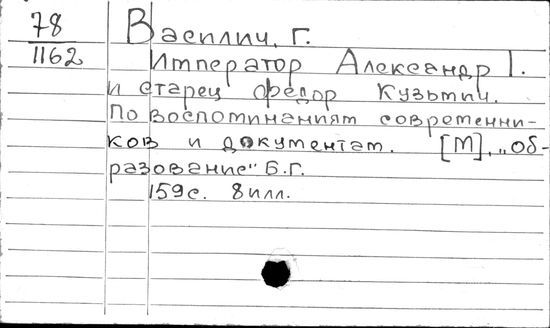 78
1162
Василич, Г.
Император Александр I.
и старец Федор Кузьмич.
По воспоминаниям современни-
ков и документам. [М], „об-
разование" Б.Г.
159с. 8илл.